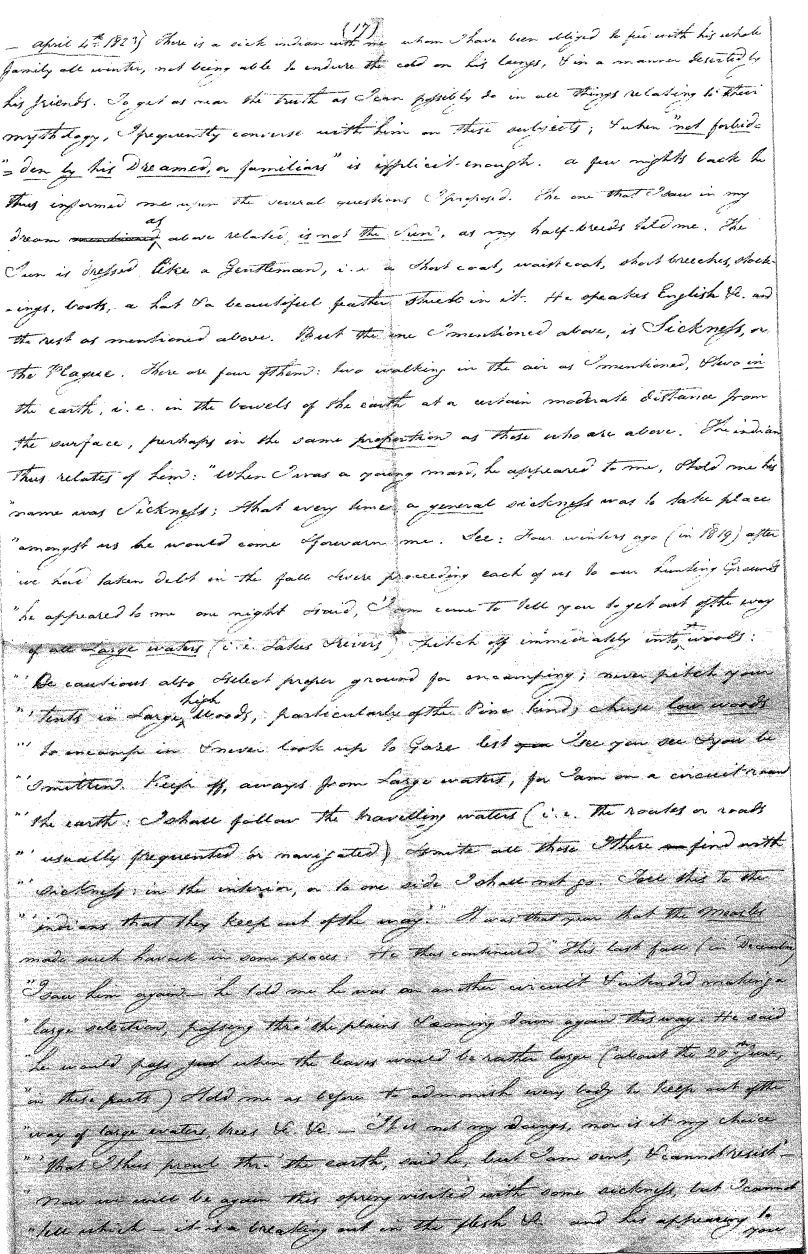 (17)
— april 4th 1823} There is a sick indian with me whom I have been obliged to feed with his whole
family all winter, not being able to endure the cold on his lungs, & in a manner deserted by
his friends. To get as near the truth as I can possibly do in all things relating to their
mythology, I frequently converse with him on these subjects; & when "not forbid-
"= den by his Dreamed, or familiars" is explicit enough. a few nights back he
thus informed me upon the several questions I proposed. The one that I saw in my
dream mentioned as above related is not the Sun, as my half-breeds told me. The
Sun is dressed like a Gentleman, i.e. a short coat, waistcoat, short breeches, stock-
-ings, boots, a hat & a beautiful feather stuck in it. He speakes English &c. and
the rest as mentioned above. But the one I mentioned above, is Sickness, or
the Plague. There are four of them: two walking in the air as I mentioned, & two in
the earth, i.e. in the bowels of the earth at a certain moderate distance from
the surface, perhaps in the same proportion as those who are above. The indian
thus relates of him: "When I was a young man, he appeared to me, & told me his
"name was Sickness; & that every time a general sickness was to take place
"amongst us he would come & forwarn me. See: Four winters ago (in 1819) after
"we had taken debt in the fall & were proceeding each of us to our hunting Grounds
"he appeared to me one night & said, 'I am come to tell you to get out of the way
of all Large waters (i.e. Lakes & rivers) & pitch off immediately into + woods:
"'Be cautious also & select proper ground for encamping; never pitch your
"'tents in Large high Woods, particularly of the Pine kind; chuse low woods
"'to encamp in & never look up to Gaze lest you I see you see & you be
"'smitten. Keep off, aways from Large waters, for I am on a circuit round
"'the earth: I shall follow the travelling waters (i.e. the routes or roads
"'usually frequented or navigated) & smite all those I there find with
"'sickness: in the interior, or to one side I shall not go. Tell this to the
"'indians that they keep out of the way.'" It was that year that the Measles
made such havock in some places. He thus continued "This last fall (in December)
"I saw him again— he told me he was on another circuit & intended making a
"large selection, passing thro' the plains & coming down again this way. He said
"he would pass just when the leaves would be rather large (about the 20th June,
"in these parts) & told me as before to admonish every body to keep out of the
"way of large waters, trees &c. &c. — 'It is not my doings, nor is it my choice
"'that I thus prowl thro' the earth, said he, but I am sent, & cannot resist'—
"now we will be again this spring visited with some sickness, but I cannot
"tell which — it is a breaking out in the flesh &c. and his appearing to
you